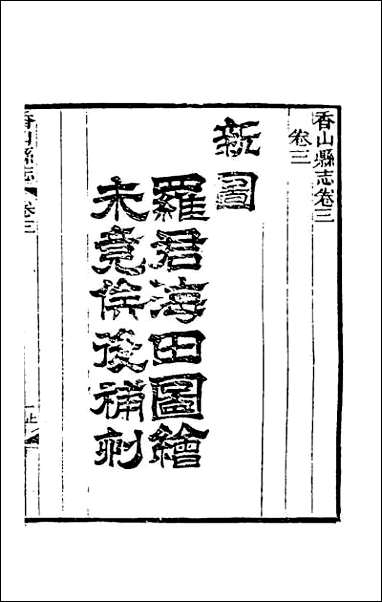 香山縣志卷三
卷三
新圖
羅君海田圖繪
未竟俟後補刺
香山縣志 卷三 一 止